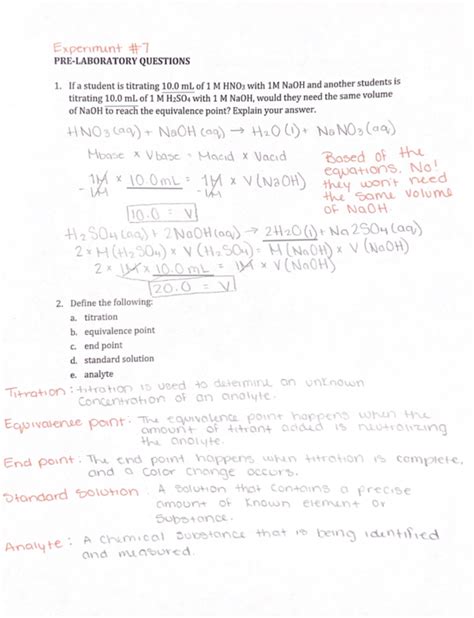 Experiment #7
PRE-LABORATORY QUESTIONS
1. If a student is titrating 10.0 mL of 1 M HNO₃ with 1M NaOH and another students is
titrating 10.0 mL of 1 M H₂SO₄ with 1 M NaOH, would they need the same volume
of NaOH to reach the equivalence point? Explain your answer.
HNO3(aq) + NaOH(aq) → H2O(l) + NaNO3(aq)
Mbase × Vbase = Macid × Vacid
1M × 10.0mL = 1M × V(NaOH)
1M 1M
10.0 = V
Based of the
equations, No!
they won't need
the same volume
of NaOH
H2SO4(aq) + 2NaOH(aq) → 2H2O(l) + Na2SO4(aq)
2 × M(H2SO4) × V(H2SO4) = M(NaOH) × V(NaOH)
2 × 1M × 10.0 mL = 1M × V(NaOH)
20.0 = V
2. Define the following:
a. titration
b. equivalence point
c. end point
d. standard solution
e. analyte
Titration: titration is used to determine an unknown
concentration of an analyte.
Equivalence point: The equivalence point happens when the
amount of titrant added is neutralizing
the analyte.
End point: The end point happens when titration is complete,
and a color change occurs.
Standard Solution: A solution that contains a precise
amount of known element or
substance.
Analyte: A chemical substance that is being identified
and measured.